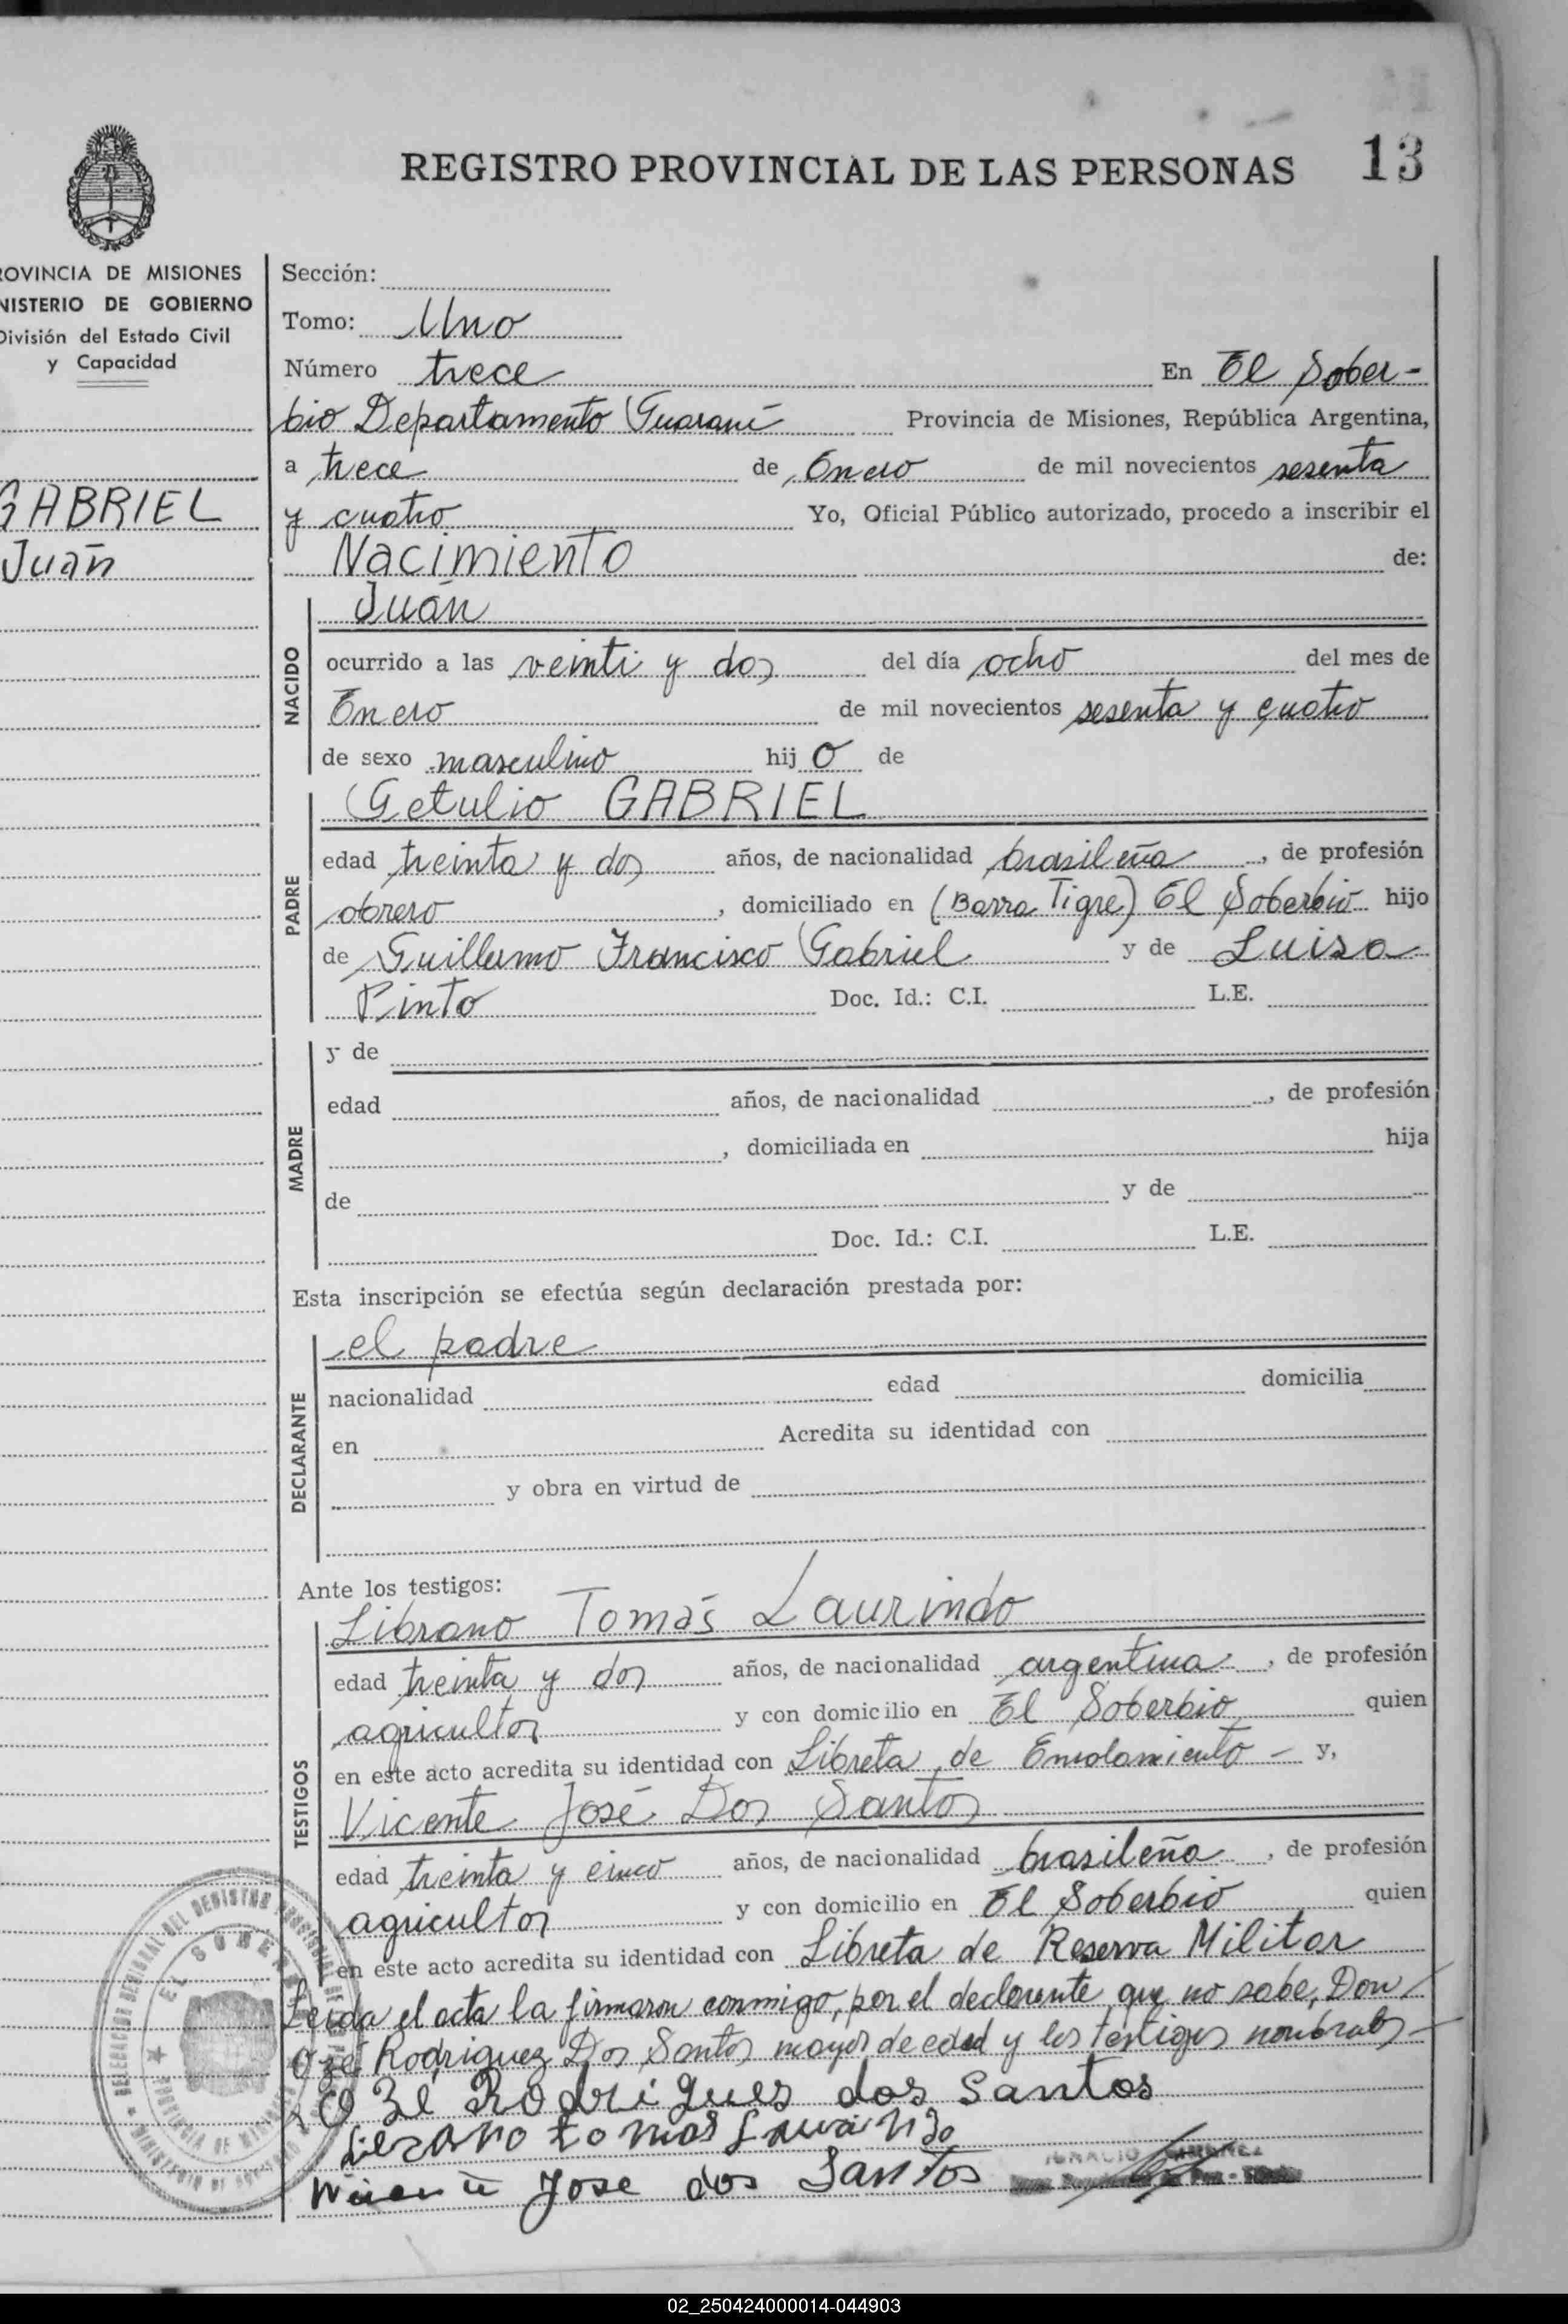 REGISTRO PROVINCIAL DE LAS PERSONAS 13
ROVINCIA DE MISIONES
NISTERIO DE GOBIERNO
División del Estado Civil
y Capacidad
GABRIEL
Juán
Sección:
Tomo: Uno
Número trece En El Sober-
bio Departamento Guaraní Provincia de Misiones, República Argentina,
a trece de Enero de mil novecientos sesenta
y cuatro Yo, Oficial Público autorizado, procedo a inscribir el
Nacimiento de:
NACIDO
Juán
ocurrido a las veinti y dos del día ocho del mes de
Enero de mil novecientos sesenta y cuatro
de sexo masculino hij o de
PADRE
Getulio GABRIEL
edad treinta y dos años, de nacionalidad brasileña, de profesión
obrero, domiciliado en (Barra Tigre) El Soberbio hijo
de Guillermo Francisco Gabriel y de Luisa
Pinto Doc. Id.: C.I. L.E.
MADRE
y de
edad años, de nacionalidad, de profesión
, domiciliada en hija
de y de
Doc. Id.: C.I. L.E.
Esta inscripción se efectúa según declaración prestada por:
DECLARANTE
el padre
nacionalidad edad domicilia
en Acredita su identidad con
y obra en virtud de
Ante los testigos:
TESTIGOS
Librano Tomás Laurindo
edad treinta y dos años, de nacionalidad argentina, de profesión
agricultor y con domicilio en El Soberbio quien
en este acto acredita su identidad con Libreta de Enrolamiento - y,
Vicente José Dos Santos
edad treinta y cinco años, de nacionalidad brasileña, de profesión
agricultor y con domicilio en El Soberbio quien
en este acto acredita su identidad con Libreta de Reserva Militar
Leida el acta la firmaron conmigo, por el declarente que no sabe, Don
Ozé Rodriguez Dos Santos mayor de edad y los testigos nombrados
Rodrigues dos Santos
tomas
Jose dos Santos
EL SOBERBIO
02_250424000014-044903